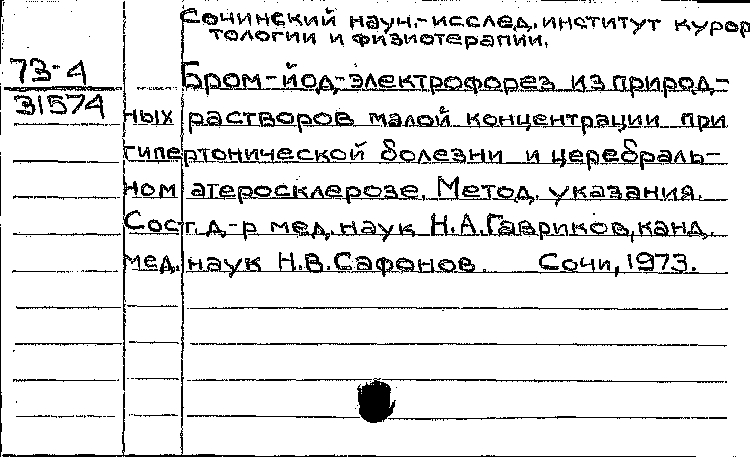 Сочинский науч.-исслед. институт курор
тологии и физиотерапии.
73-4
31574
Бром-йод-электрофорез из природ-
ных растворов малой концентрации при
гипертонической болезни и церебраль-
ном атеросклерозе. Метод. указания.
Сост. д-р мед. наук Н.А.Гавриков, канд.
мед. наук Н.В.Сафонов. Сочи, 1973.